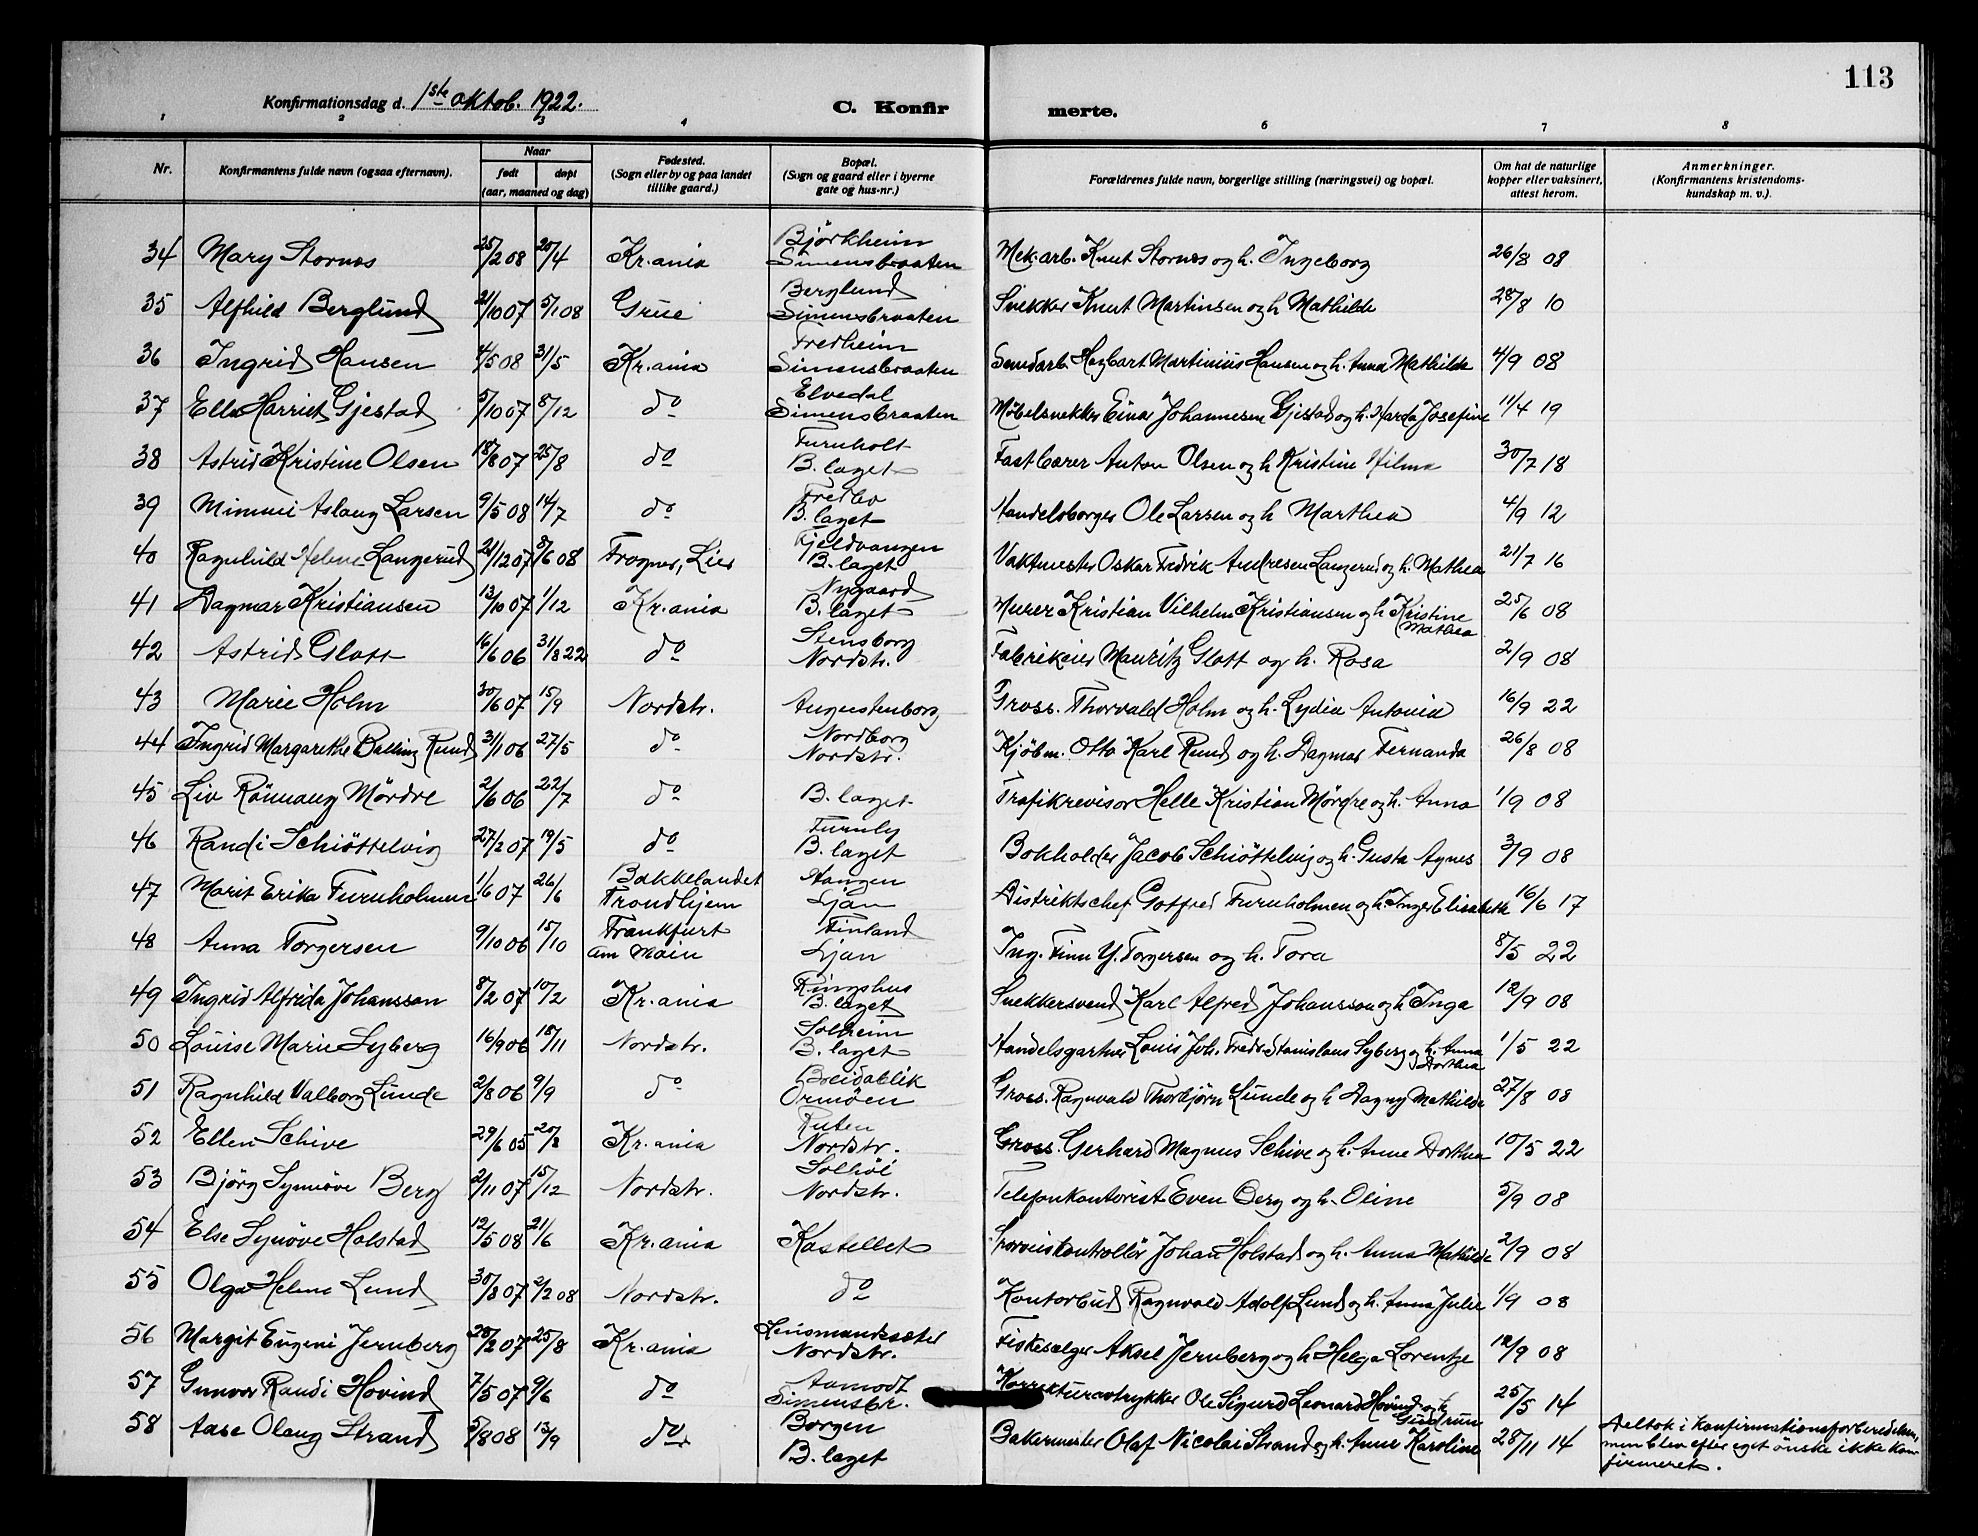 113
Konfirmationsdag d. 1ste oktob. 1922.
C. Konfir
merte.
1 2 3 4 6 7 8
Nr. Konfirmantens fulde navn (ogsaa efternavn). Naar født døpt (aar, maaned og dag) Fødested. (Sogn eller by og paa landet tillike gaard.) Bopæl. (Sogn og gaard eller i byerne gate og hus-nr.) Forældrenes fulde navn, borgerlige stilling (næringsvei) og bopæl. Om hat de naturlige kopper eller vaksinert, attest herom. Anmerkninger. (Konfirmantens kristendomskundskap m. v.).
34 Mary Stornes 25/2 08 20/4 Kr.ania Björkheim Simensbraaten Mek.arb. Knut Stornes og h. Ingeborg 26/8 08
35 Alfhild Berglund 21/10 07 5/1 08 Grue Berglund Simensbraaten Snekker Knut Martinsen og h Mathilde 28/8 10
36 Ingrid Hansen 4/5 08 31/5 Kr.ania Fredheim Simensbraaten Hagbart Martinius Hansen og h. Anna Mathilde 4/9 08
37 Ella Harriet Gjestad 5/10 07 8/12 do Elvedal Simensbraaten Møbelsnekker Einar Johannesen Gjestad og h. Harda Josefine 11/4 19
38 Astrid Kristine Olsen 18/8 07 25/8 do Furuholt B. laget Fastbærer Anton Olsen og h Kristine Hilma 30/7 18
39 Mimmi Aslaug Larsen 9/5 08 14/7 do Fredbo B. laget Handelsborger Ole Larsen og h Marthea 4/9 12
40 Ragnhild Helene Langerud 21/12 07 8/6 08 Frogner, Lier Fjeldvangen B. laget Vaktmester Oskar Fredrik Andresen Langerud og h. Mathea 21/7 16
41 Dagmar Kristiansen 13/10 07 1/12 Kr.ania Nygaard B. laget Murer Kristian Vilhelm Kristiansen og h Kristine Mathea 25/6 08
42 Astrid Glott 16/6 06 31/8 22 do Stensborg Nordstr. Fabrikeier Mauritz Glott og h. Rosa 2/9 08
43 Marie Holm 30/6 07 15/9 Nordstr. Augustenborg Gross. Thorvald Holm og h. Lydia Antonia 16/9 22
44 Ingrid Margarethe Balling Rund 31/1 06 27/5 do Nordborg Nordstr. Kjøbm. Otto Karl Rund og h. Dagmar Fernanda 26/8 08
45 Liv Rönnaug Mördre 2/6 06 22/7 do B. laget Trafikrevisor Helle Kristian Mørdre og h. Anna 1/9 08
46 Randi Schiöttelvig 27/2 07 19/5 do Furuly B. laget Bokholder Jacob Schiöttelvig og h. Gusta Agnes 3/9 08
47 Marit Erika Furuholmen 1/6 07 26/6 Bakkelandet Trondhjem Hangen Ljan Distriktschef Gotfred Furuholmen og h. Inger Elisabeth 16/6 17
48 Anna Torgersen 9/10 06 15/10 Frankfurt am Main Finland Ljan Ing. Finn Y. Torgersen og h. Tora 8/5 22
49 Ingrid Alfrida Johansson 8/2 07 10/2 Kr.ania Ringshus B. laget Snekkersvend Karl Alfred Johansson og h Inga 12/9 08
50 Louise Marie Syberg 16/9 06 18/11 Nordstr. Solheim B. laget Handelsgartner Louis Joh. Fredr. Stanislaus Syberg og h. Anna Dorthea 1/5 22
51 Ragnhild Valborg Lunde 2/8 06 9/9 do Breidablik Ormöen Gross. Ragnvald Thorbjørn Lunde og h Dagny Mathilde 27/8 08
52 Ellen Schive 29/6 05 20/8 Kr.ania Ruten Nordstr. Gross. Gerhard Magnus Schive og h. Anne Dorthea 10/5 22
53 Björg Synnöve Berg 2/11 07 15/12 Nordstr. Solhöi Nordstr. Telefonkontorist Even Berg og h. Oline 5/9 08
54 Else Synöve Holstad 12/5 08 21/6 Kr.ania Kastellet Sporveiskontrollör Johan Holstad og h. Anna Mathilde 2/9 08
55 Olga Helene Lund 30/8 07 2/2 08 Nordstr. do Kontorbud Ragnvald Adolf Lund og h. Anna Julie 1/9 08
56 Margit Eugeni Jernberg 28/2 07 25/8 Kr.ania Lensmandssæter Nordstr. Fiskesælger Aksel Jernberg og h Helga Lorentze 12/9 08
57 Gunvor Randi Hovind 7/5 07 9/6 do Aamodt Simensbr. Korrekturavtrykker Ole Sigurd Leonard Hovind og h. Gudrun 25/5 14
58 Aase Olaug Strand 5/8 08 13/9 do Borgen B. laget Bakermester Olaf Nicolai Strand og h. Anne Karoline 28/11 14 Deltok i konfirmationsforberedelsen, men blev efter eget önske ikke konfirmeret.